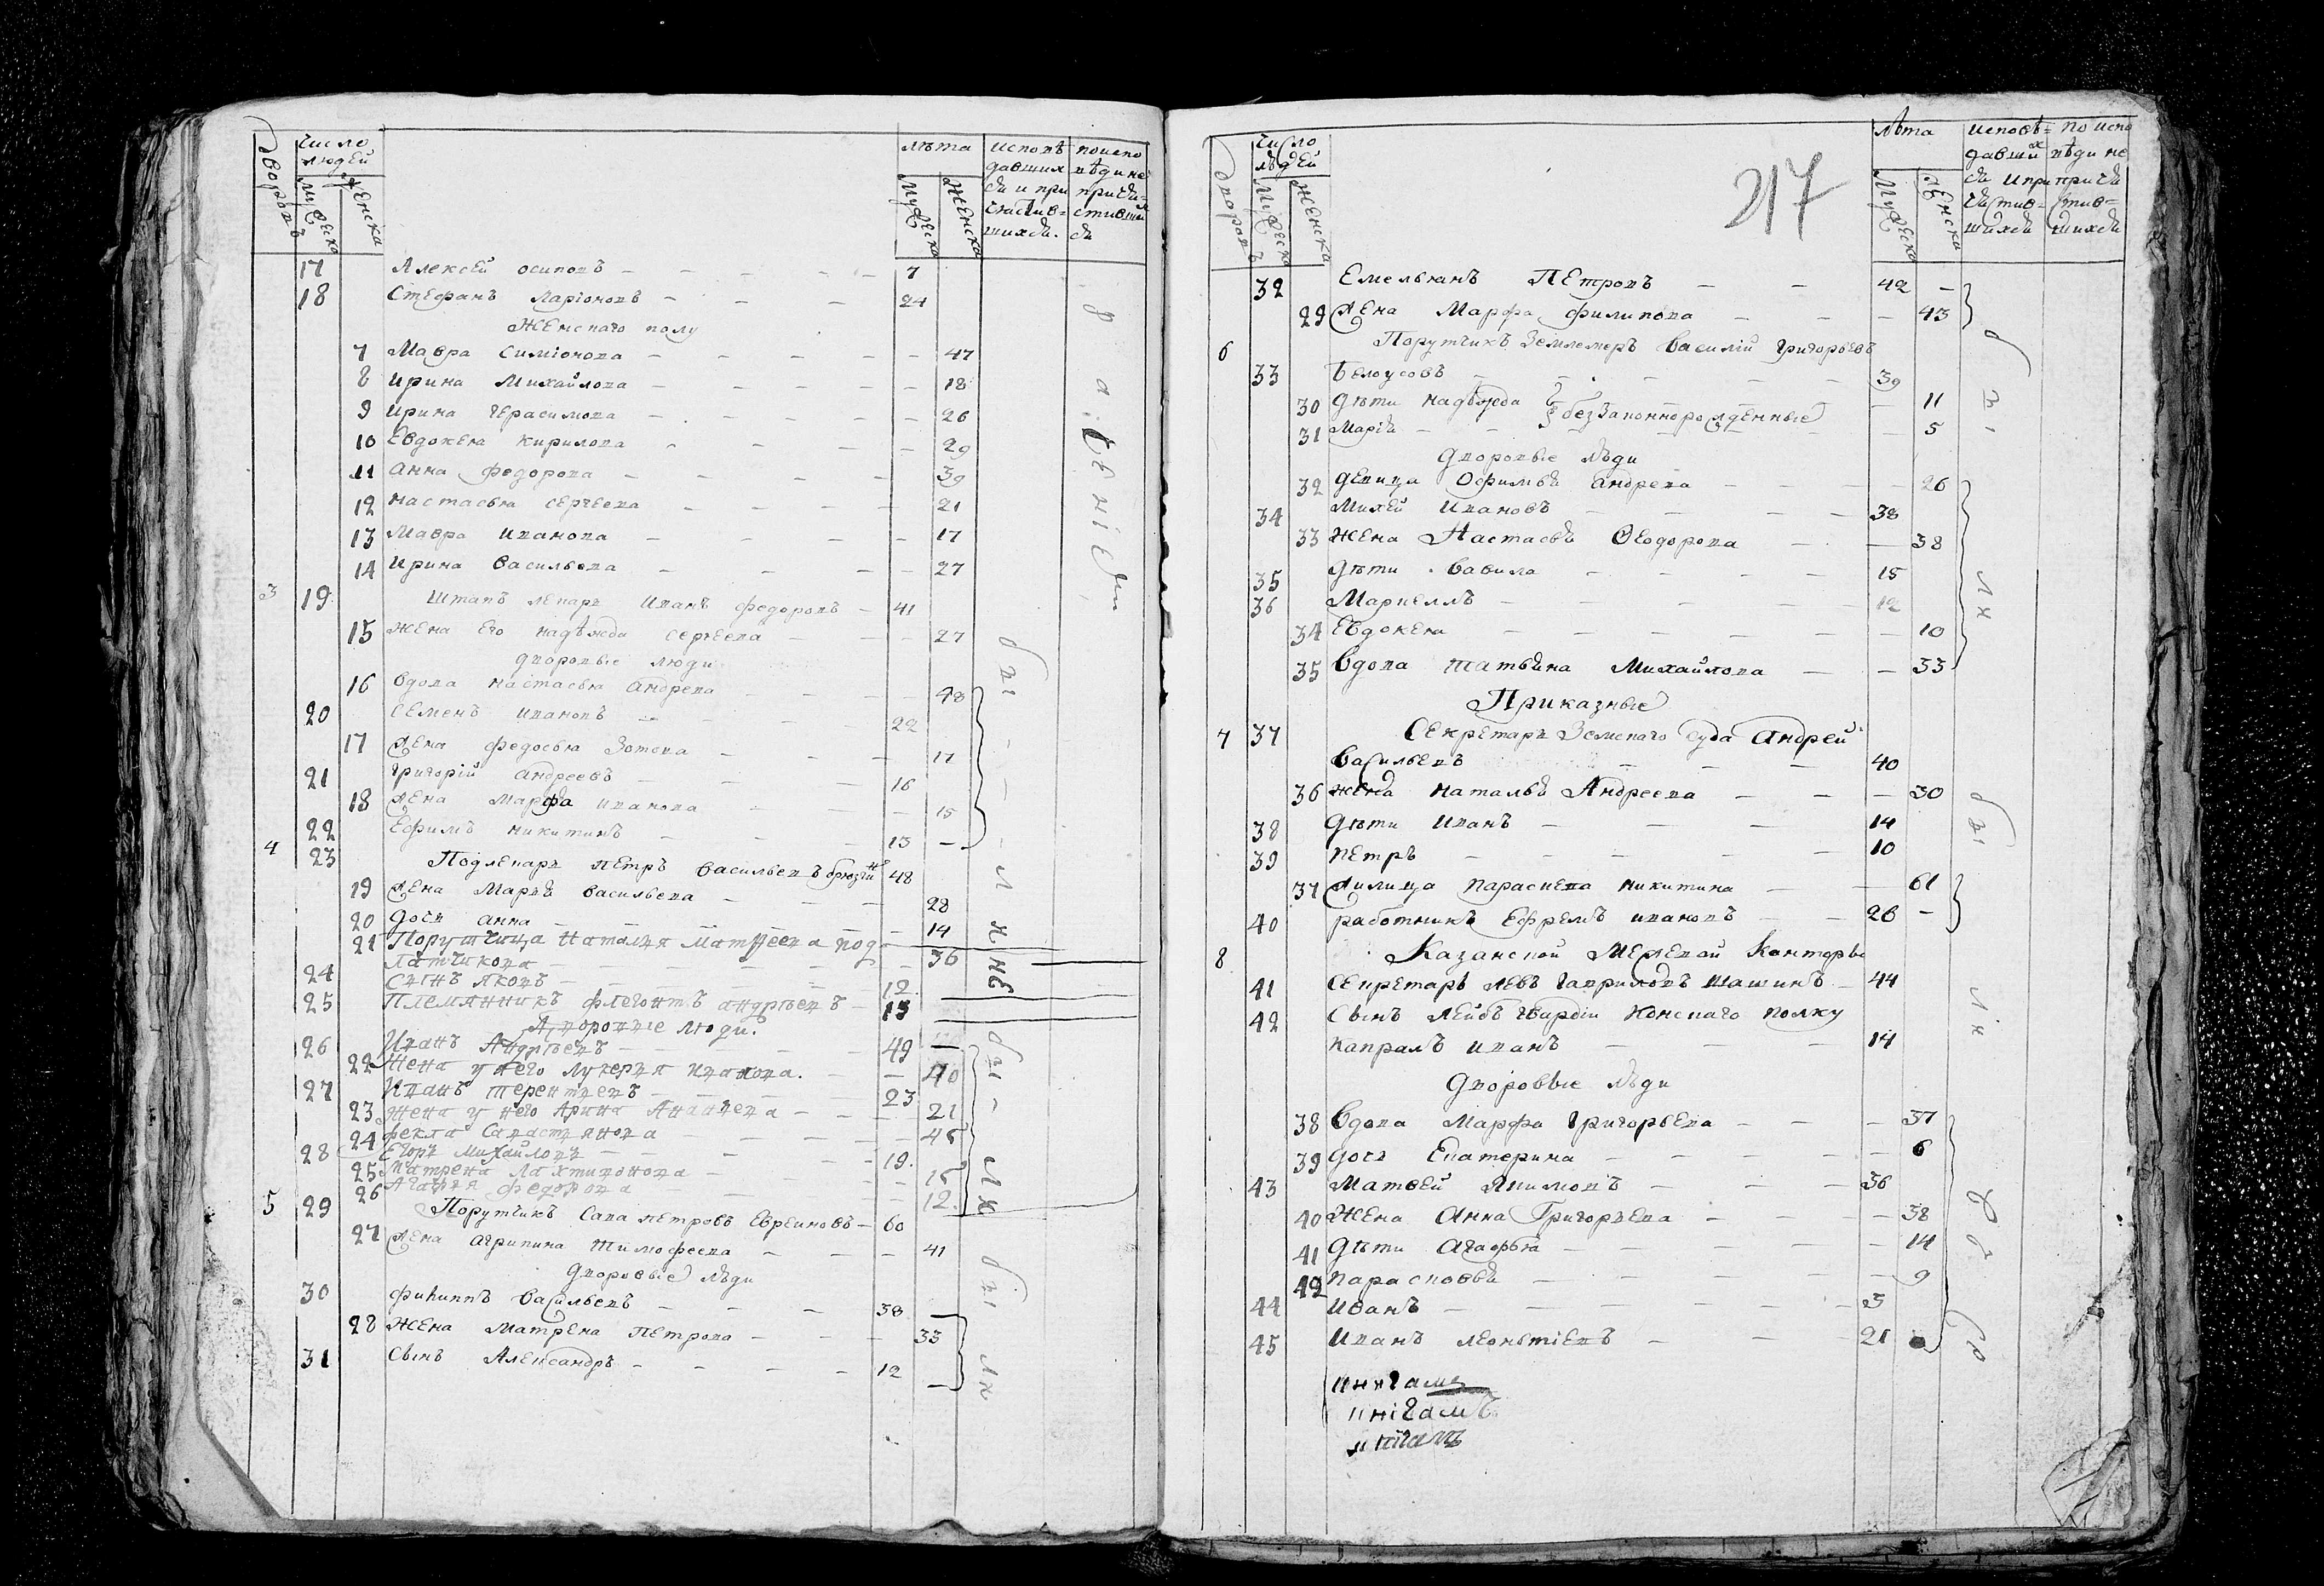 дворовъ число людей лѣта исповѣ= поиспо
давших вѣди не
ся и при причя=
частив= стивши
шихся. ся
мужеска женска мужеска женска
17 Алексѣй осиповъ — 7
18 Стефанъ Ларіоновъ — 24
Женскаго полу
7 Мавра Симіонова — 47
8 Ирина Михайлова — 18
9 Ирина Герасимова — 26
10 Евдокея Кирилова — 29
11 Анна Федорова — 39
12 Настасья Сергеева — 21
13 Мавра Иванова — 17
14 Ирина Васильева — 27
3 19 Штапъ лекарь Иванъ Федоровъ — 41
15 Жена его надѣжда Сергеева — 27
дворовые люди
16 Вдова Настасья Андреева — 48
20 Семенъ Ивановъ — 22
17 Жена Федосья Зотова — 17
21 Григорій Андреевъ — 16
18 Жена Марфа Иванова — 15
22 Ефимъ Никитинъ — 13 —
4 23 Подлекарь Петръ Васильевъ 48
19 Жена Марья Васильева — 28
20 дочь Анна — 14
21 Порутчица Наталия Матвеева под
латчикова — 36
24 Сынъ Яковъ — 12
25 Племянникъ Флегонтъ Андрѣевъ — 13
Дворовые люди.
26 Иванъ Андрѣевъ — 49 —
22 Жена у него Лукерия Иванова. — 40
27 Иванъ Терентиевъ — 23
23 жена у него Арина Ананиева — 21
24 Фекла Савастиянова — 45
28 Егоръ Михайловъ — 19.
25 Матрена — 15
26 Агафия Федорова — 12.
5 29 Порутчикъ Сава Петровъ Евреиновъ — 60
27 Жена Агрипина Тимофеева — 41
дворовые люди
30 Филиппъ Васильевъ — 38
28 Жена Матрена Петрова — 33
31 Сынъ Александръ — 12 —
217
дворовъ число людей лѣта исповѣ= по испо
давших вѣди не
ся и при причя
частив= стив=
шихся шихся
мужеска женска мужеска женска
32 Емельянъ Петровъ — 42 —
29 Жена Марфа Филипова — 43
6 Порутчикъ Землемеръ Василій Григорьевъ
33 Белоусовъ — 39
30 Дѣти надѣжда беззаконнорожденные — 11
31 Марія — 5
дворовые люди
32 девица Офимья Андреева — 26
34 Михей Ивановъ — 38
33 Жена Настасья Феодорова — 38
35 Дѣти Вавила — 15
36 Маркеллъ — 12
34 Евдокея — 10
35 Вдова Татьяна Михайлова — 33
Приказные
7 37 Секретарь Земскаго Суда Андрей
Васильевъ — 40
36 Жена Наталья Андреева — 30
38 Дѣти Иванъ — 14
39 Петръ — 10
37 Жилица Параскева Никитина — 61
40 работникъ Ефремъ Ивановъ — 26 —
8 Казанской Межевой Канторы
41 Секретарь Левъ Гавриловъ Шашинъ — 44
42 Сынъ Лейбъ гвардіи Коннаго полку
Капралъ Иванъ — 14
Дворовые люди
38 Вдова Марфа Григорьева — 37
39 Дочь Екатерина — 6
43 Матвей Якимовъ — 36
40 Жена Анна Григорьева — 38
41 Дѣти Агафья — 14
42 Парасковья — 9
44 Иванъ — 3
45 Иванъ Леонтіевъ — 21